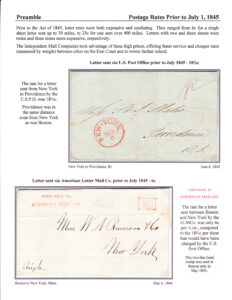 Preamble
Postage Rates Prior to July 1, 1845
Prior to the Act of 1845, letter rates were both expensive and confusing. They ranged from 6c for a single
sheet letter sent up to 30 miles, to 25c for one sent over 400 miles. Letters with two and three sheets were
twice and three times more expensive, respectively.
The Independent Mail Companies took advantage of these high prices, offering faster service and cheaper rates
(measured by weight) between cities on the East Coast and to towns further inland.
Letter sent via U.S. Post Office prior to July 1845 - 18¾c
The rate for a letter
sent from New York
to Providence by the
U.S.P.O. was 18¾c.
Providence was in
the same distance
zone from New York
as was Boston.
Providence
New York to Providence, RI
June 6, 1845
Letter sent via American Letter Mail Co. prior to July 1845 - 6c
AMERICAN MAIL CO.
The rate for a letter
sent between Boston
and New York by the
ALMCo. was only 6c
per ½ oz., compared
to the 18¾c per sheet
that would have been
charged by the U.S.
Post Office.
This two-line hand
stamp was used at
Boston only in
May 1844.
Mess W A Ransom & Co
New York
Single
Boston to New York, Mass.
May 6, 1844